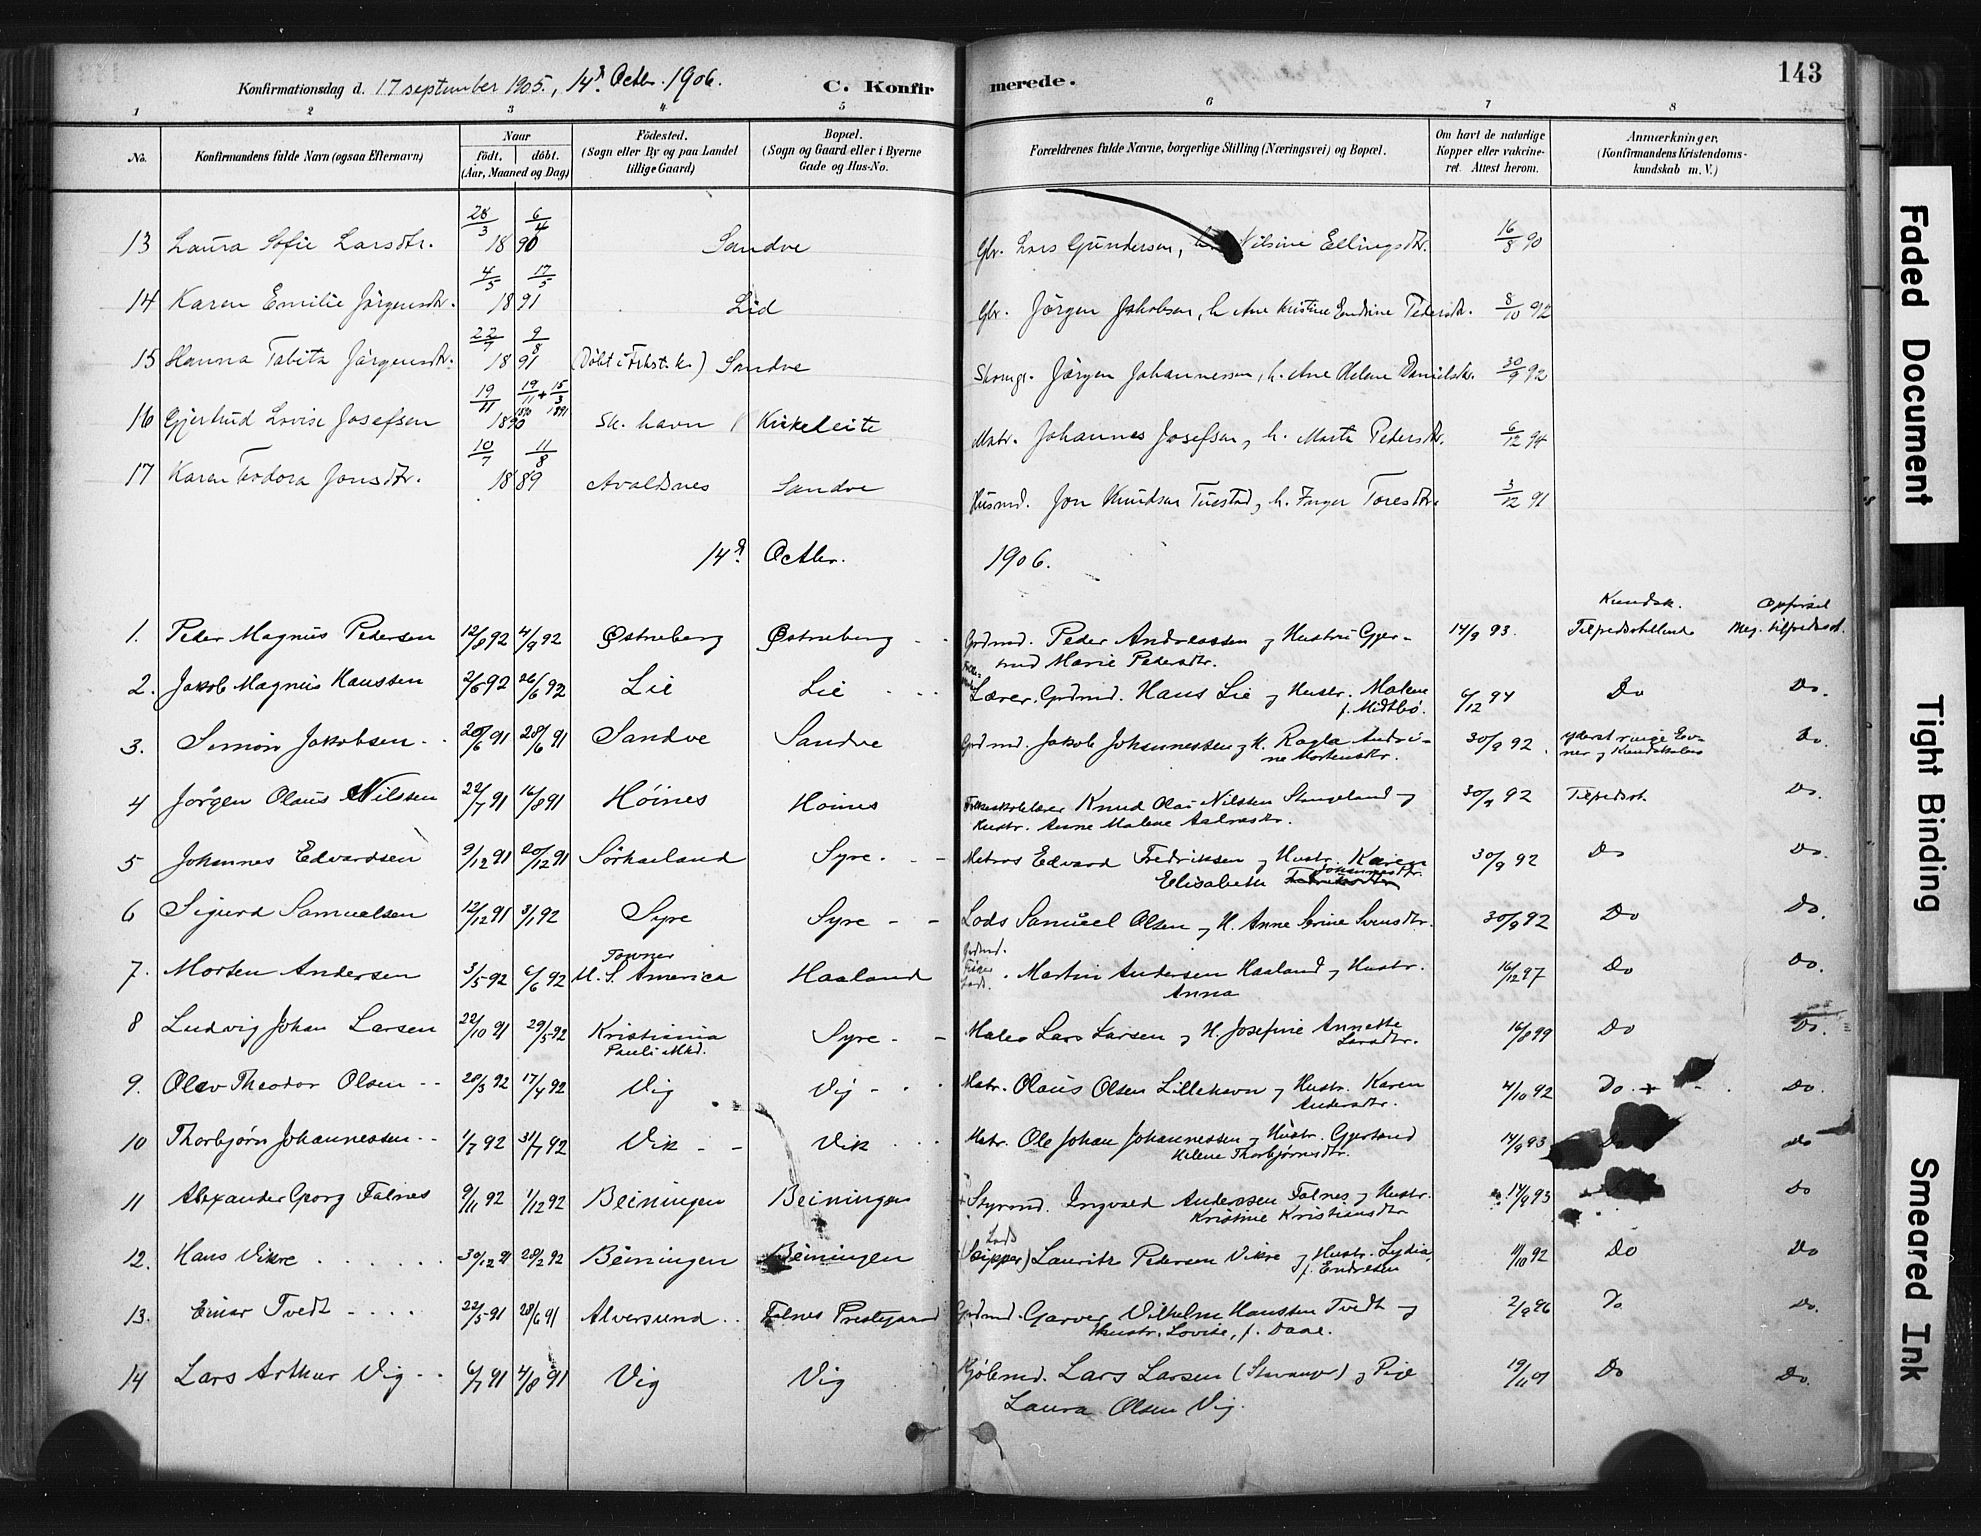 Konfirmationsdag d. 17 september 1905., 14d. Octbr. 1906. C. Konfirmerede. 143
1 2 3 4 5 6 7 8
No. Konfirmandens fulde Navn (ogsaa Efternavn) Naar født. døbt. (Aar, Maaned og Dag) Fødested. (Sogn eller By og paa Landet tillige Gaard) Bopæl. (Sogn og Gaard eller i Byerne Gade og Hus-No. Forældrenes fulde Navne, borgerlige Stilling (Næringsvei) og Bopæl. Om havt de naturlige Kopper eller vakcineret. Attest herom. Anmærkninger, (Konfirmandens Kristendomskundskab m. V.)
13 Laura Sofie Larsdtr. 28/3 6/4 1890 Sandve Gbr. Lars Gundersen, Nilsine Ellingsdtr. 16/8 90
14 Karen Emilie Jørgensdtr. 4/5 17/5 1891 Lid Gbr. Jørgen Jakobsen, h. Ane Kristine Endrine Pedersdtr. 8/10 92
15 Hanna Tabita Jørgensdtr. 22/7 9/8 1891 Sandve Jørgen Johannessen, h. Ane Helene Danielsdtr. 30/9 92
16 Gjertrud Lovise Josefsen 19/11 19/11 1890 + 15/3 1891 1890 Sk. havn Kirkeleite Matr. Johannes Josefsen, h. Marta Pedersdtr. 6/12 94
17 Karen Teodora Jonsdtr. 10/7 11/8 1889 Avaldsnes Sandve Husmd. Jon Knudsen Tuestad, h. Inger Toresdtr. 3/12 91
14d. Octbr. 1906.
Kundsk. Opførsel
1. Peder Magnus Pedersen 12/8 92 4/9 92 Østneberg Østneberg Grdmd. Peder Andreassen og Hustru Gjertrud Marie Pedersdtr. 14/9 93. Tilfredsstillende Meg. tilfredsst.
2. Jakob Magnus Hanssen 2/6 92 26/6 92 Lie Lie Lærer. Grdmd. Hans Lie og Hustr. Malene f. Midtbø. 6/12 94 Do Do.
3. Simon Jakobsen 20/6 91 28/6 91 Sandve Sandve Grdmd. Jakob Johannessen og H. Ragla Andrine Mortensdtr. 30/9 92. yderst ringe Evner og Kundskaber Do.
4 Jørgen Olaus Nilssen 22/7 91 16/8 91 Høines Høines Folkeskolelærer Knud Olai Nilssen Stangeland og Hustr. Anne Malene Aslaksdtr. 30/9 92 Tilfredsst. Do.
5 Johannes Edvardsen 9/12 91 20/12 91 Sørhaaland Syre. Matros Edvard Fredriksen og Hustr. Karen Elisabeth Johannesdtr. 30/9 92 Do Do.
6 Sigurd Samuelsen 12/12 91 3/1 92 Syre Syre Lods Samuel Olsen og H. Anne Serine Svensdtr. 30/9 92 Do Do.
7. Morten Andersen 3/5 92 6/6 92 Towner U. S. America Haaland Grdmd. Fisker Martin Andersen Haaland og Hustr. Anna 16/12 97 Do Do.
8 Ludvig Johan Larsen 22/10 91 29/5 92 Kristiania Pauli Mkd. Syre Maler Lars Larsen og H. Josefine Annette Larsdtr. 16/8 99 Do Do.
9. Olav Theodor Olsen 20/3 92 17/4 92 Vig Vig Matr. Olaus Olsen Lillehavn og Hustr. Karen Andersdtr. 4/10 92 Do Do.
10 Thorbjørn Johannessen 1/7 92 31/7 92 Vik Vik Matr. Ole Johan Johannessen og Hustr. Gjertrud Helene Thorbjørnsdtr. 14/9 93 Do Do
11 Alexander Georg Falnes 9/11 92 1/12 92 Beiningen Beiningen Styrmd. Ingvald Andersen Falnes og Hustr. Kristine Kristiansdtr 14/9 93 Do
12. Hans Vikre 30/12 91 28/2 92 Beiningen Beiningen Lods (Skipper) Laurits Pedersen Vikre og Hustr. Lydia, f. Endresen 11/10 92 Do Do
13. Einar Tvedt 22/5 91 28/6 91 Alversund Falnes Prestegaard Grdmd. Garver Vilhelm Hanssen Tvedt og Hustr. Lovise, f. Daae. 2/9 96 Do Do.
14 Lars Arthur Vig 6/7 91 4/8 91 Vig Vig Kjøbmd. Lars Larsen (Stavanger) og Pige Laura Olsen Vig. 19/11 01 Do Do.
Faded Document
Tight Binding
Smeared Ink